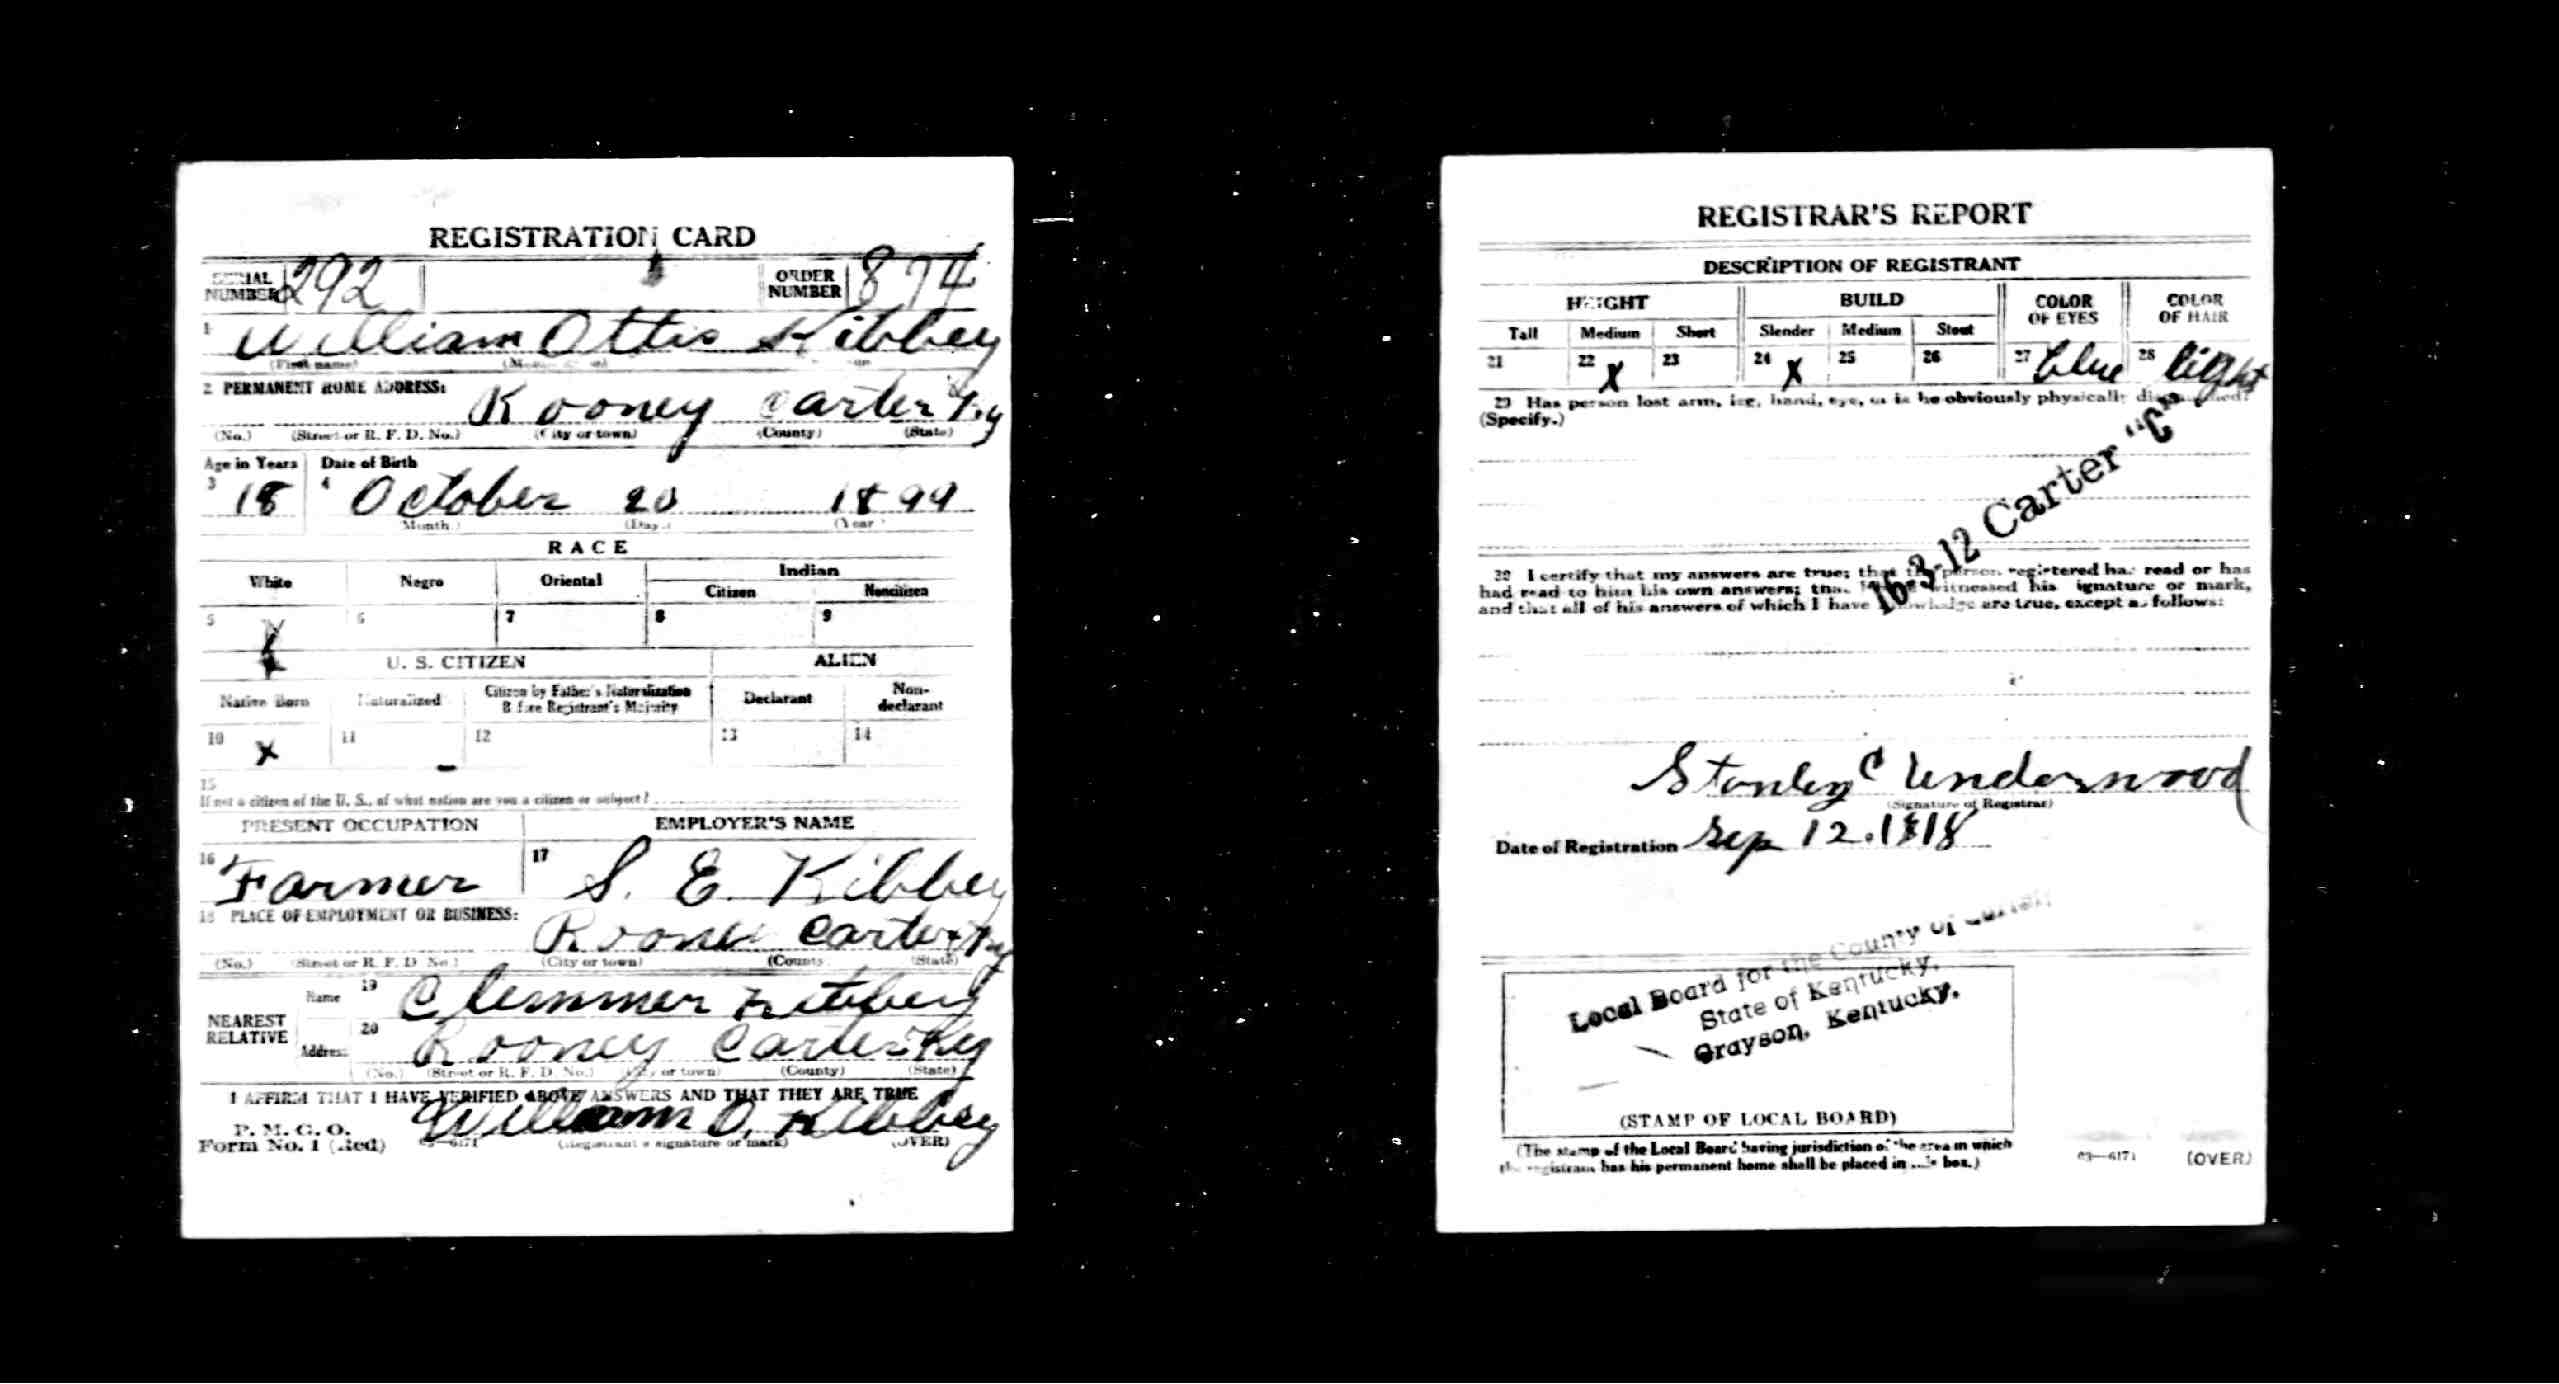 REGISTRATION CARD
SERIAL NUMBER 292 ORDER NUMBER 874
1 William Ottis Kibbey
(First name)
2 PERMANENT HOME ADDRESS:
Rooney Carter Ky
(No.) (Street or R. F. D. No.) (City or town) (County) (State)
Age in Years Date of Birth
3 18 4 October 20 1899
(Month.) (Day.) (Year
RACE
White Negro Oriental Indian
Citizen Noncitizen
5 X 6 7 8 9
U. S. CITIZEN ALIEN
Native Born Naturalized Citizen by Father's Naturalization Before Registrant's Majority Declarant Non-declarant
10 X 11 12 13 14
15
If not a citizen of the U. S., of what nation are you a citizen or subject?
PRESENT OCCUPATION EMPLOYER'S NAME
16 Farmer 17 S. E. Kibbey
18 PLACE OF EMPLOYMENT OR BUSINESS:
Rooney Carter Ky
(No.) (Street or R. F. D. No.) (City or town) (County (State)
NEAREST RELATIVE
Name 19 Clemmer Kibbey
Address 20 Rooney Carter Ky
(No.) (Street or R. F. D. No.) (City or town) (County) (State)
I AFFIRM THAT I HAVE VERIFIED ABOVE ANSWERS AND THAT THEY ARE TRUE
P. M. G. O.
Form No. 1 (Red) 03—6171 William O. Kibbey
(Registrant's signature or mark) (OVER)
REGISTRAR'S REPORT
DESCRIPTION OF REGISTRANT
HEIGHT BUILD COLOR OF EYES COLOR OF HAIR
Tall Medium Short Slender Medium Stout
21 22 X 23 24 X 25 26 27 blue 28 light
29 Has person lost arm, leg, hand, eye, or is he obviously physically
(Specify.)
16-3-12 Carter "C"
30 I certify that my answers are true; that the person registered has read or has
had read to him his own answers; that witnessed his signature or mark,
and that all of his answers of which I have knowledge are true, except as follows:
Stanley C Underwood
(Signature of Registrar)
Date of Registration Sep 12. 1918
Local Board for the County of Carter,
State of Kentucky,
Grayson, Kentucky.
(STAMP OF LOCAL BOARD)
(The stamp of the Local Board having jurisdiction of the area in which
the registrant has his permanent home shall be placed in this box.)
03—6171 (OVER)